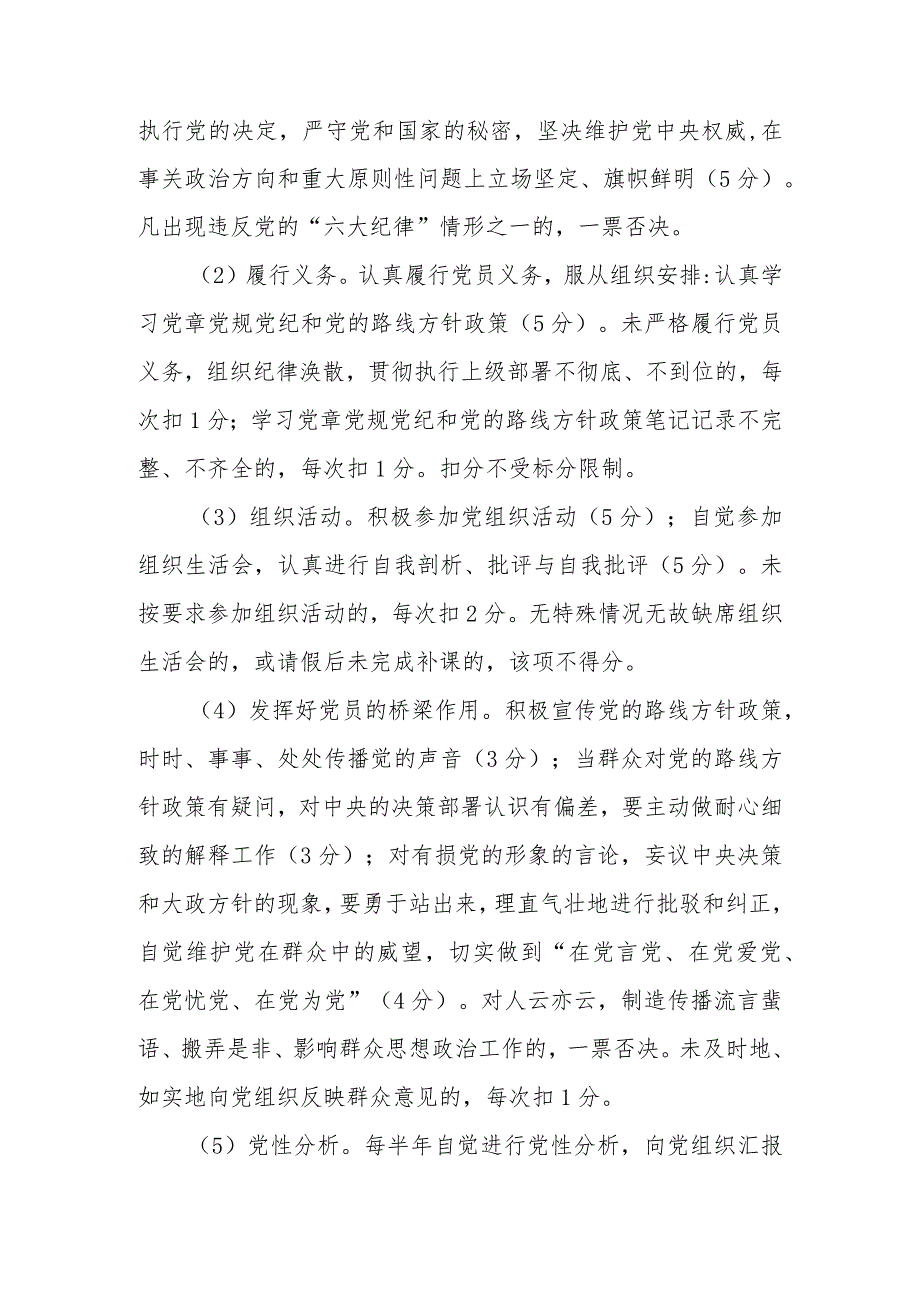 执行党的决定，严守党和国家的秘密，坚决维护党中央权威,在
事关政治方向和重大原则性问题上立场坚定、旗帜鲜明（5分）。
凡出现违反党的“六大纪律”情形之一的，一票否决。
（2）履行义务。认真履行党员义务，服从组织安排:认真学
习党章党规党纪和党的路线方针政策（5分）。未严格履行党员
义务，组织纪律涣散，贯彻执行上级部署不彻底、不到位的，每
次扣1分；学习党章党规党纪和党的路线方针政策笔记记录不完
整、不齐全的，每次扣1分。扣分不受标分限制。
（3）组织活动。积极参加党组织活动（5分）；自觉参加
组织生活会，认真进行自我剖析、批评与自我批评（5分）。未
按要求参加组织活动的，每次扣2分。无特殊情况无故缺席组织
生活会的，或请假后未完成补课的，该项不得分。
（4）发挥好党员的桥梁作用。积极宣传党的路线方针政策，
时时、事事、处处传播觉的声音（3分）；当群众对党的路线方
针政策有疑问，对中央的决策部署认识有偏差，要主动做耐心细
致的解释工作（3分）；对有损党的形象的言论，妄议中央决策
和大政方针的现象，要勇于站出来，理直气壮地进行批驳和纠正，
自觉维护党在群众中的威望，切实做到“在党言党、在党爱党、
在党忧党、在党为党”（4分）。对人云亦云，制造传播流言蜚
语、搬弄是非、影响群众思想政治工作的，一票否决。未及时地、
如实地向党组织反映群众意见的，每次扣1分。
（5）党性分析。每半年自觉进行党性分析，向党组织汇报